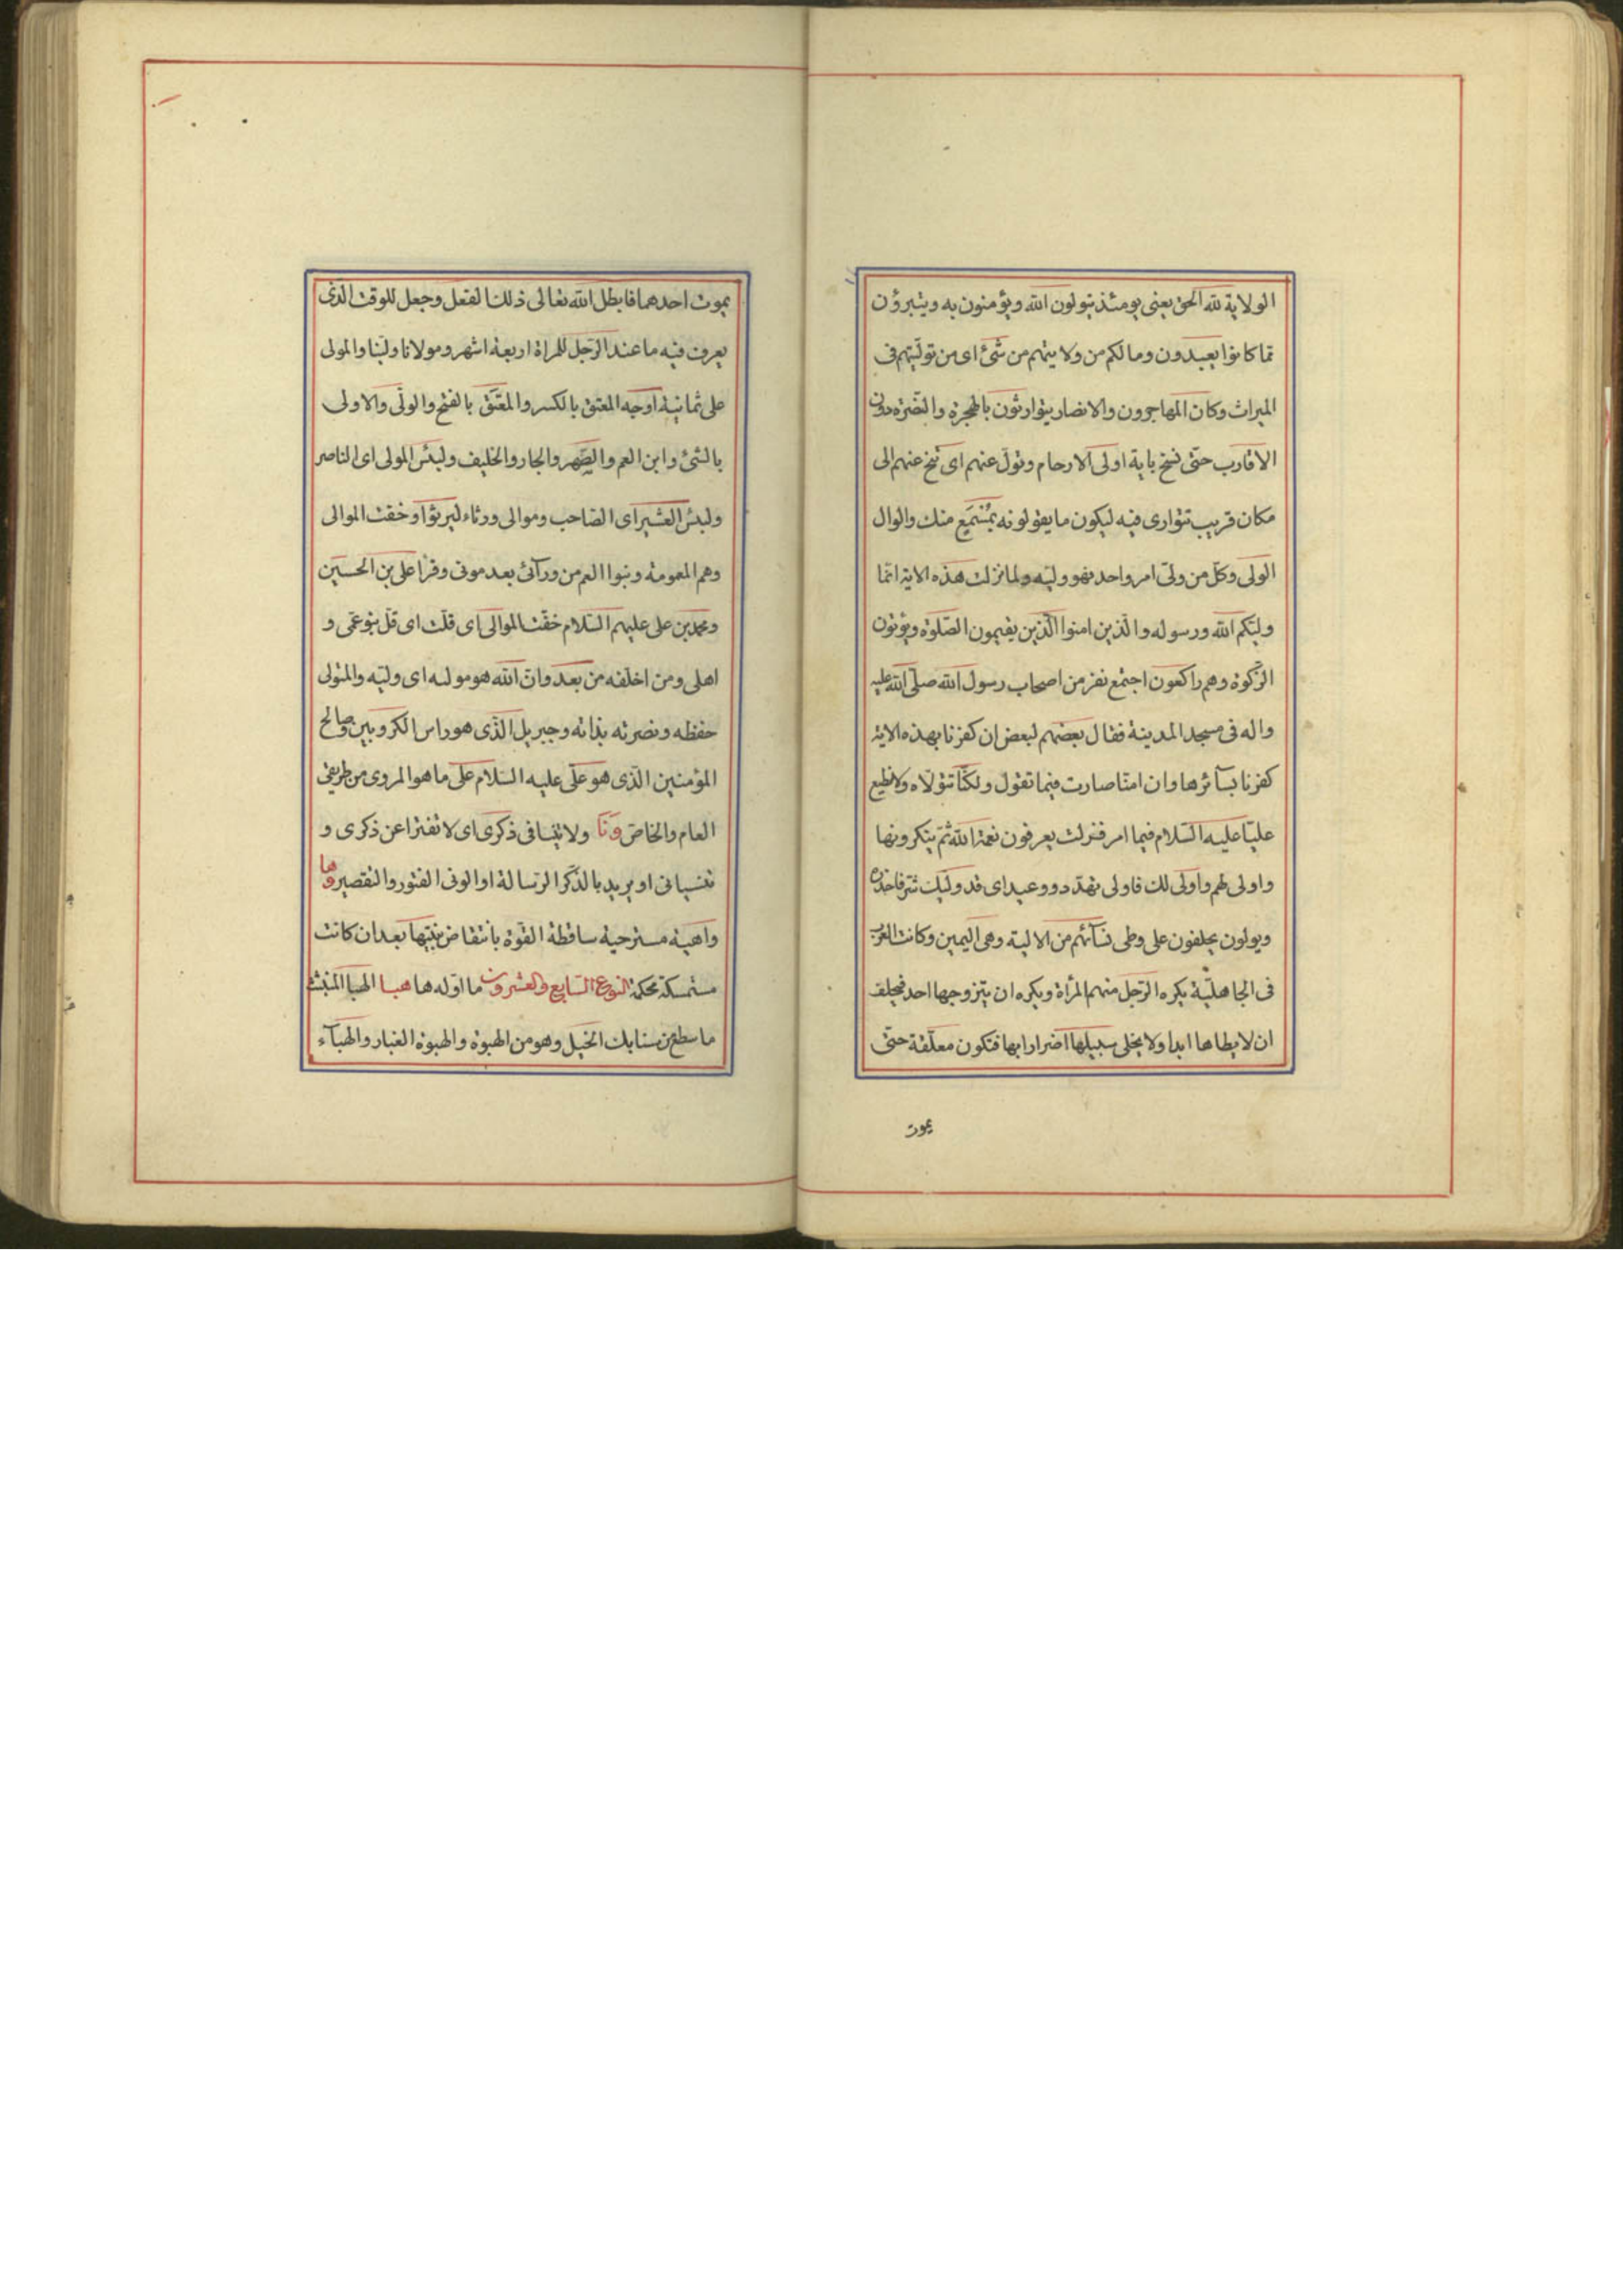 الولاية لله الحق يعنى يومئذ يتولون الله ويؤمنون به ويتبرؤن
مما كانوا يعبدون ومالكم من ولايتهم من شئ اى من توليتهم فى
الميراث وكان المهاجرون والانصار يتوارثون بالهجرة والنصرة دون
الاقارب حتى نسخ باية اولى الارحام وتول عنهم اى تنح عنهم الى
مكان قريب تتوارى فيه ليكون ما يقولونه بمستمع منك والوال
الولى وكل من ولى امر واحد فهو وليه ولما نزلت هذه الاية انما
وليكم الله ورسوله والذين امنوا الذين يقيمون الصلوة ويؤتون
الزكوة وهم راكعون اجتمع نفر من اصحاب رسول الله صلى الله عليه
واله فى مسجد المدينة فقال بعضهم لبعض ان كفرنا بهذه الاية
كفرنا بسآئرها وان امنا صارت فيما تقول ولكنا نتولاه ولا نطيع
عليا عليه السلام فيما امر فنزلت يعرفون نعمة الله ثم ينكرونها
واولى لهم واولى لك فاولى تهدد ووعيد اى قد وليك شر فاحذره
ويولون يحلفون على وطى نسآئهم من الالية وهى اليمين وكانت العرب
فى الجاهلية يكره الرجل منهم المرأة ويكره ان يتزوجها احد فيحلف
ان لا يطاها ابدا ولا يخلى سبيلها اضرارا بها فتكون معلقة حتى
يموت
يموت احدهما فابطل الله تعالى ذلك الفعل وجعل للوقت الذى
يعرف فيه ما عند الرجل للمراة اربعة اشهر ومولانا ولينا والمولى
على ثمانية اوجه المعتق بالكسر والمعتق بالفتح والولى والاولى
بالشئ وابن العم والصهر والجار والحليف ولبئس المولى اى الناصر
ولبئس العشير اى الصاحب وموالى ورثاء ليربؤا وخفت الموالى
وهم العمومة وبنوا العم من ورآئى بعد موتى وقرأ على بن الحسين
ومحمد بن على عليهم السلام خفت الموالى اى قلت اى قل بنو عمى و
اهلى ومن اخلفه من بعد وان الله هو موليه اى وليه والمتولى
حفظه ونصرته بذاته وجبريل الذى هو راس الكروبين وصالح
المؤمنين الذى هو على عليه السلام على ما هو المروى من طريقى
العام والخاص ونا ولا تنيا فى ذكرى اى لا تفترا عن ذكرى و
تنسيانى او يريد بالذكر الرسالة او الونى الفتور والتقصير وها
واهية مسترخية ساقطة القوة بانتقاض بنيتها بعد ان كانت
مستمسكة محكمة النوع السابع والعشرون ما اوله ها هبا الهبا المنبث
ما سطع من سنابك الخيل وهو من الهبوة والهبوة الغبار والهبآء